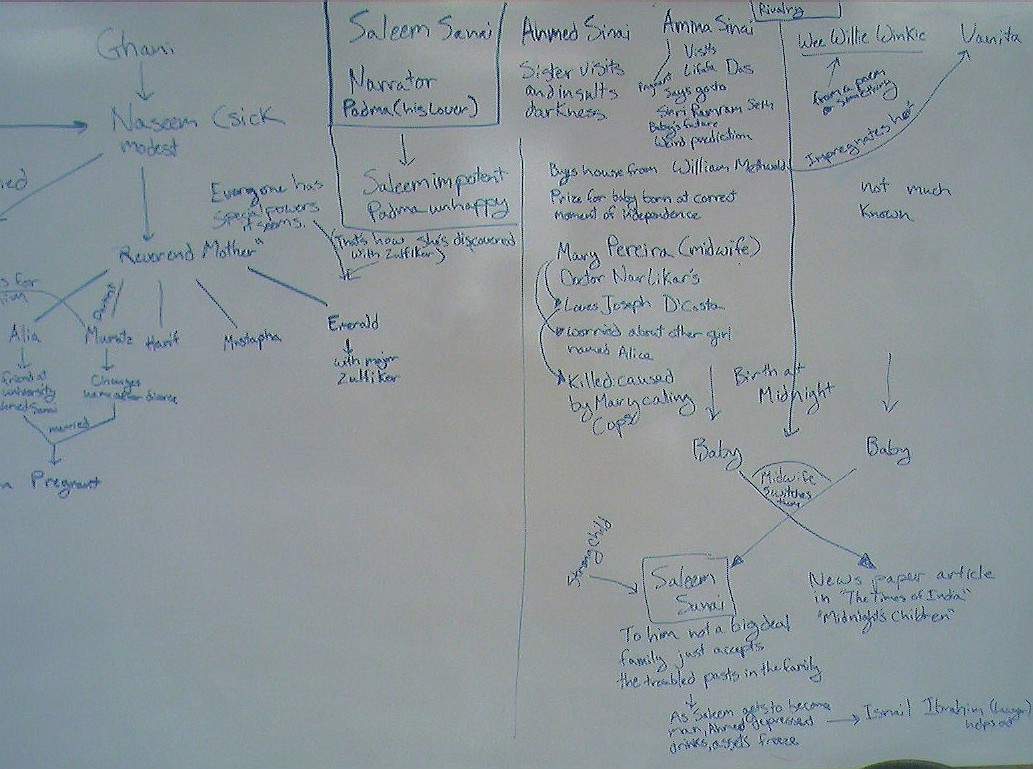 Ghani
Naseem (sick
modest
Everyone has
special powers
it seems.
Reverend Mother"
Alia
Mumtaz
Hanif
Mustapha
Emerald
with major
Zulfiker
friend at
university
Ahmed Sanai
Changes
name after divorce
married
Pregnant
Saleem Sanai
Narrator
Padma (his lover)
Saleem impotent
Padma unhappy
(That's how she's discovered
with Zulfiker)
Ahmed Sinai
Sister visits
and insults
darkness
Amina Sinai
Visits
Lifafa Das
Says go to
Shri Ramram Seth
Baby's future
Weird prediction
Rivalry
Wee Willie Winkie
from a poem
or something
Vanita
Impregnates her
not much
Known
Buys house from William Methwold
Prize for baby born at correct
moment of independence
Mary Pereira (midwife)
Doctor Narlikar's
Loves Joseph D'Costa
worried about other girl
named Alice
Killed caused
by Mary caling
Cops
Birth at
Midnight
Baby
Baby
Midwife
Switches
them
Strong Child
Saleem
Sanai
News paper article
in "The Times of India"
"Midnight's Children"
To him not a big deal
family just accepts
the troubled pasts in the family
As Saleem gets to become
man, Ahmed depressed
drinks, assets freeze
Ismail Ibrahim (lawyer)
helps out